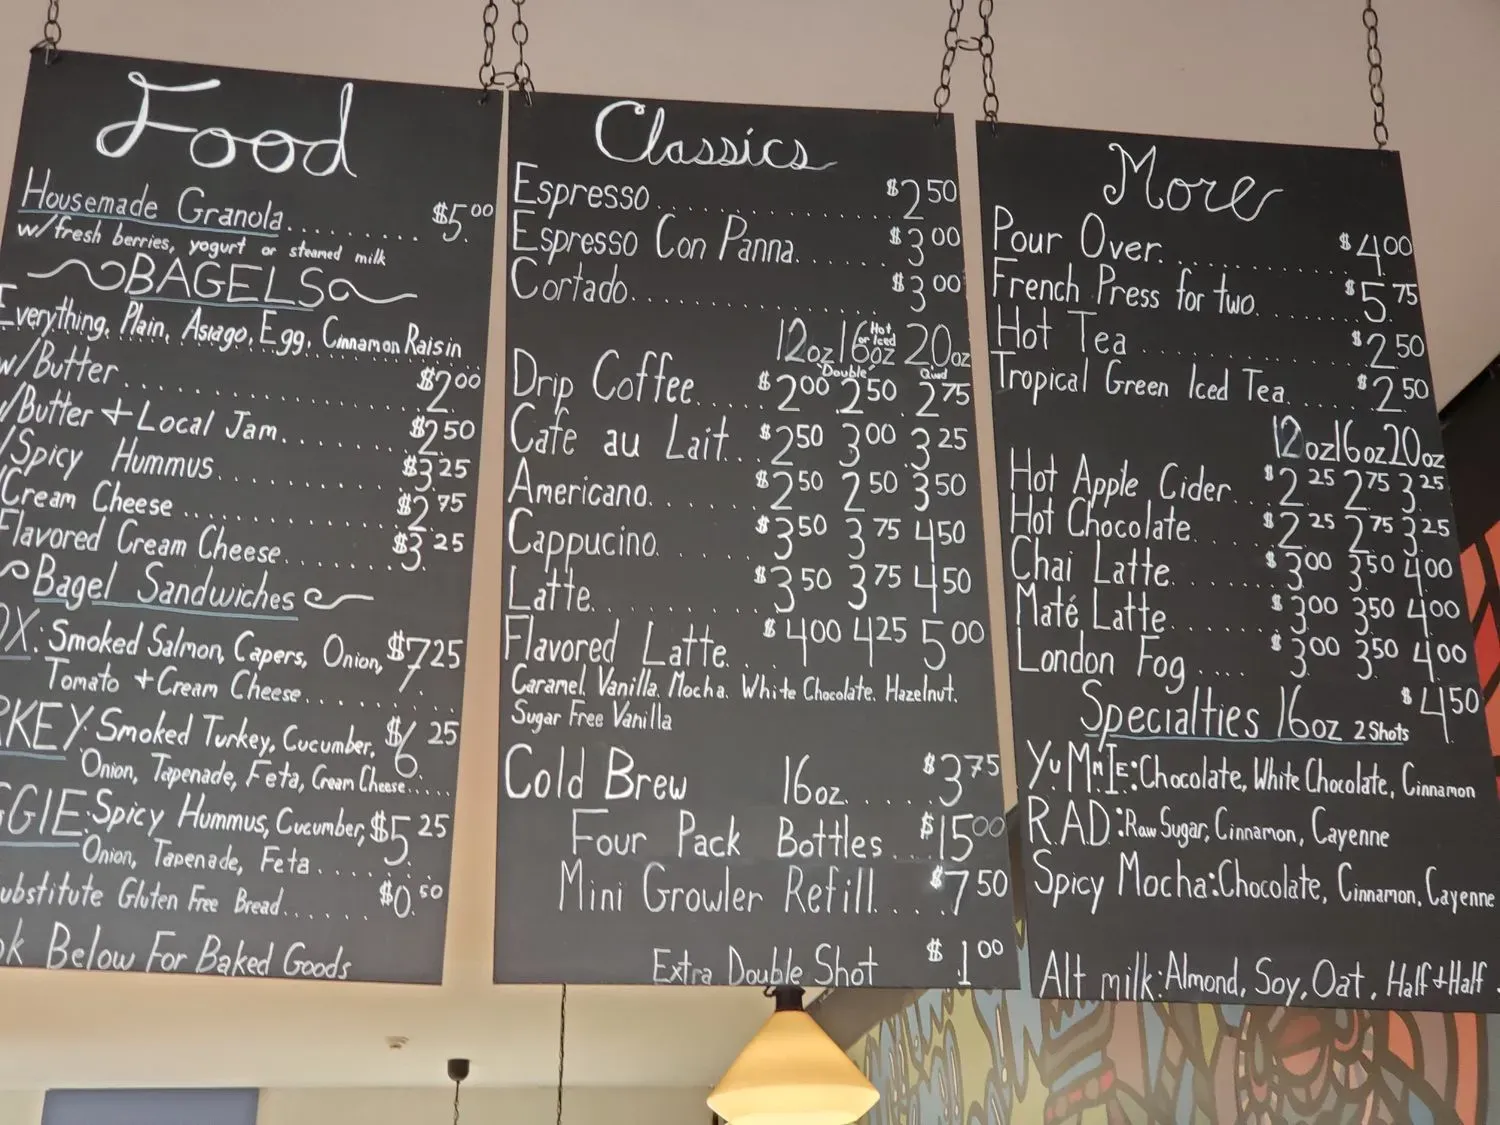 Food
Housemade Granola.......... $5.00
w/fresh berries, yogurt or steamed milk
BAGELS
Everything, Plain, Asiago, Egg, Cinnamon Raisin
w/Butter.......... $2.00
w/Butter + Local Jam....... $2.50
/Spicy Hummus.......... $3.25
/Cream Cheese.......... $2.75
Flavored Cream Cheese....... $3.25
Bagel Sandwiches
OX: Smoked Salmon, Capers, Onion, $7.25
Tomato + Cream Cheese........
RKEY: Smoked Turkey, Cucumber, $6.25
Onion, Tapenade, Feta, Cream Cheese.....
GGIE: Spicy Hummus, Cucumber, $5.25
Onion, Tapenade, Feta........
ubstitute Gluten Free Bread...... $0.50
ok Below For Baked Goods
Classics
Espresso.......... $2.50
Espresso Con Panna....... $3.00
Cortado.......... $3.00
Hot or Iced
12oz 16oz 20oz
Double Quad
Drip Coffee.... $2.00 2.50 2.75
Cafe au Lait... $2.50 3.00 3.25
Americano....... $2.50 2.50 3.50
Cappucino....... $3.50 3.75 4.50
Latte.......... $3.50 3.75 4.50
Flavored Latte... $4.00 4.25 5.00
Caramel, Vanilla, Mocha, White Chocolate, Hazelnut,
Sugar Free Vanilla
Cold Brew 16oz..... $3.75
Four Pack Bottles... $15.00
Mini Growler Refill.... $7.50
Extra Double Shot $1.00
More
Pour Over.......... $4.00
French Press for two....... $5.75
Hot Tea.......... $2.50
Tropical Green Iced Tea..... $2.50
12oz 16oz 20oz
Hot Apple Cider... $2.25 2.75 3.25
Hot Chocolate..... $2.25 2.75 3.25
Chai Latte....... $3.00 3.50 4.00
Maté Latte....... $3.00 3.50 4.00
London Fog.... $3.00 3.50 4.00
Specialties 16oz 2 Shots $4.50
Yu.M.M.I.E: Chocolate, White Chocolate, Cinnamon
R.A.D: Raw Sugar, Cinnamon, Cayenne
Spicy Mocha: Chocolate, Cinnamon, Cayenne
Alt milk: Almond, Soy, Oat, Half + Half